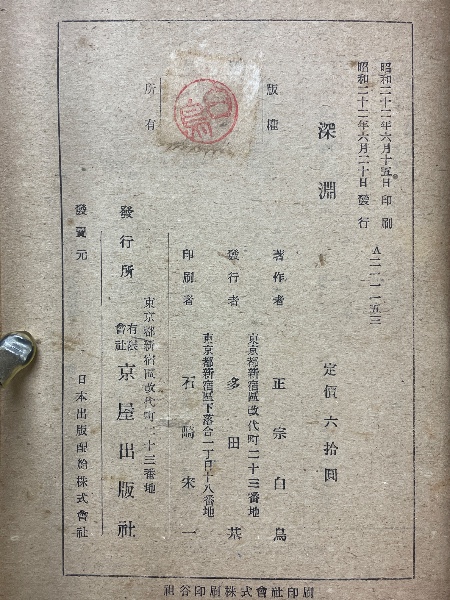 昭和二十二年六月十五日 印刷
昭和二十二年六月二十日 發行
A二一一一五三
深淵
定價六拾圓
版權
所有
白鳥
著作者 正宗白鳥
東京都新宿區改代町二十三番地
發行者 多田基
東京都新宿區下落合一丁目十八番地
印刷者 石崎宋一
東京都新宿區改代町二十三番地
發行所 有限會社 京屋出版社
發賣元 日本出版配給株式會社
祖谷印刷株式會社印刷